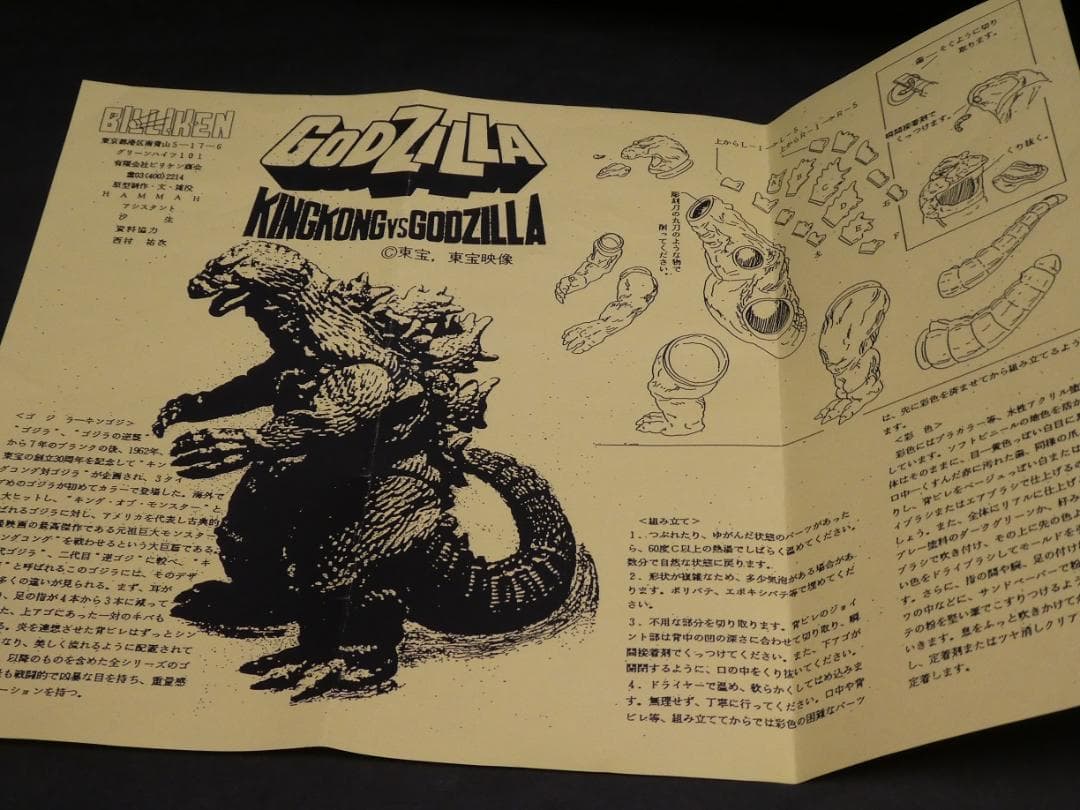 BILLIKEN
東京都港区南青山5-17-6
グリーンハイツ101
有限会社ビリケン商会
☎03(400)2214
原型制作・文・雑役
HAMMAH
アシスタント
汐 生
資料協力
西村 祐次
GODZILLA
KINGKONG VS GODZILLA
©東宝, 東宝映像
<ゴジラーキンゴジ>
"ゴジラ"、"ゴジラの逆襲"
から7年のブランクの後、1962年、
東宝の創立30周年を記念して"キン
グコング対ゴジラ"が企画され、3タイ
プめのゴジラが初めてカラーで登場した。海外で
大ヒットし、"キング・オブ・モンスター"と
ばれるゴジラに対し、アメリカを代表し古典的
怪映画の最高傑作である元祖巨大モンスター
ングコング"を戦わせるという大巨篇である。
代ゴジラ"、二代目"逆ゴジ"に較べ、"キ
"と呼ばれるこのゴジラには、そのデザ
多くの違いが見られる。まず、耳が
り、足の指が4本から3本に減って
た、上アゴにあった一対のキバも
る。炎を連想させた背ビレはずっとシン
なり、美しく流れるように配置されて
以降のものを含めた全シリーズのゴ
も戦闘的で凶暴な目を持ち、重量感
ーションを持つ。
上からL-1→L-5
上からR-1→R-5
彫刻刀の丸刀のような物で
削ってください。
歯
そぐように切り
取ります。
瞬間接着剤で
くっつけます。
くり抜く。
<組み立て>
1. つぶれたり、ゆがんだ状態のパーツがあった
ら、60度C以上の熱湯でしばらく温めてください。
数分で自然な状態に戻ります。
2. 形状が複雑なため、多少気泡がある場合があ
ります。ポリパテ、エポキシパテ等で埋めてくだ
さい。
3. 不用な部分を切り取ります。背ビレのジョイ
ント部は背中の凹の深さに合わせて切り取り、瞬
間接着剤でくっつけてください。また、下アゴが
開閉するように、口の中をくり抜いてください。
4. ドライヤーで温め、軟らかくしてはめ込みま
す。無理せず、丁寧に行ってください。口中や背
ビレ等、組み立ててからでは彩色の困難なパーツ
は、先に彩色を済ませてから組み立てるよう
ます。
<彩 色>
彩色にはプラカラー等、水性アクリル塗
しています。ソフトビニールの地色を活か
体はそのままに、目ー黄色っぽい白目に
口中ーくすんだ赤に汚れた歯、同様の爪
りし、背ビレをベージュっぽい白または
イブラシまたはエアブラシで仕上げるの
しょう。また、全体にリアルに仕上げ
プレー塗料のダークグリーンか、
ブラシで吹き付け、その上に先の色よ
い色をドライブラシしてモールドを
す。さらに、指の間や腕、足の付け
ワの中などに、サンドペーパーで粉
テの粉を堅い筆でこすりつけるよう
いきます。息をふっと吹きかけて余
し、定着剤またはツヤ消しクリア
定着します。